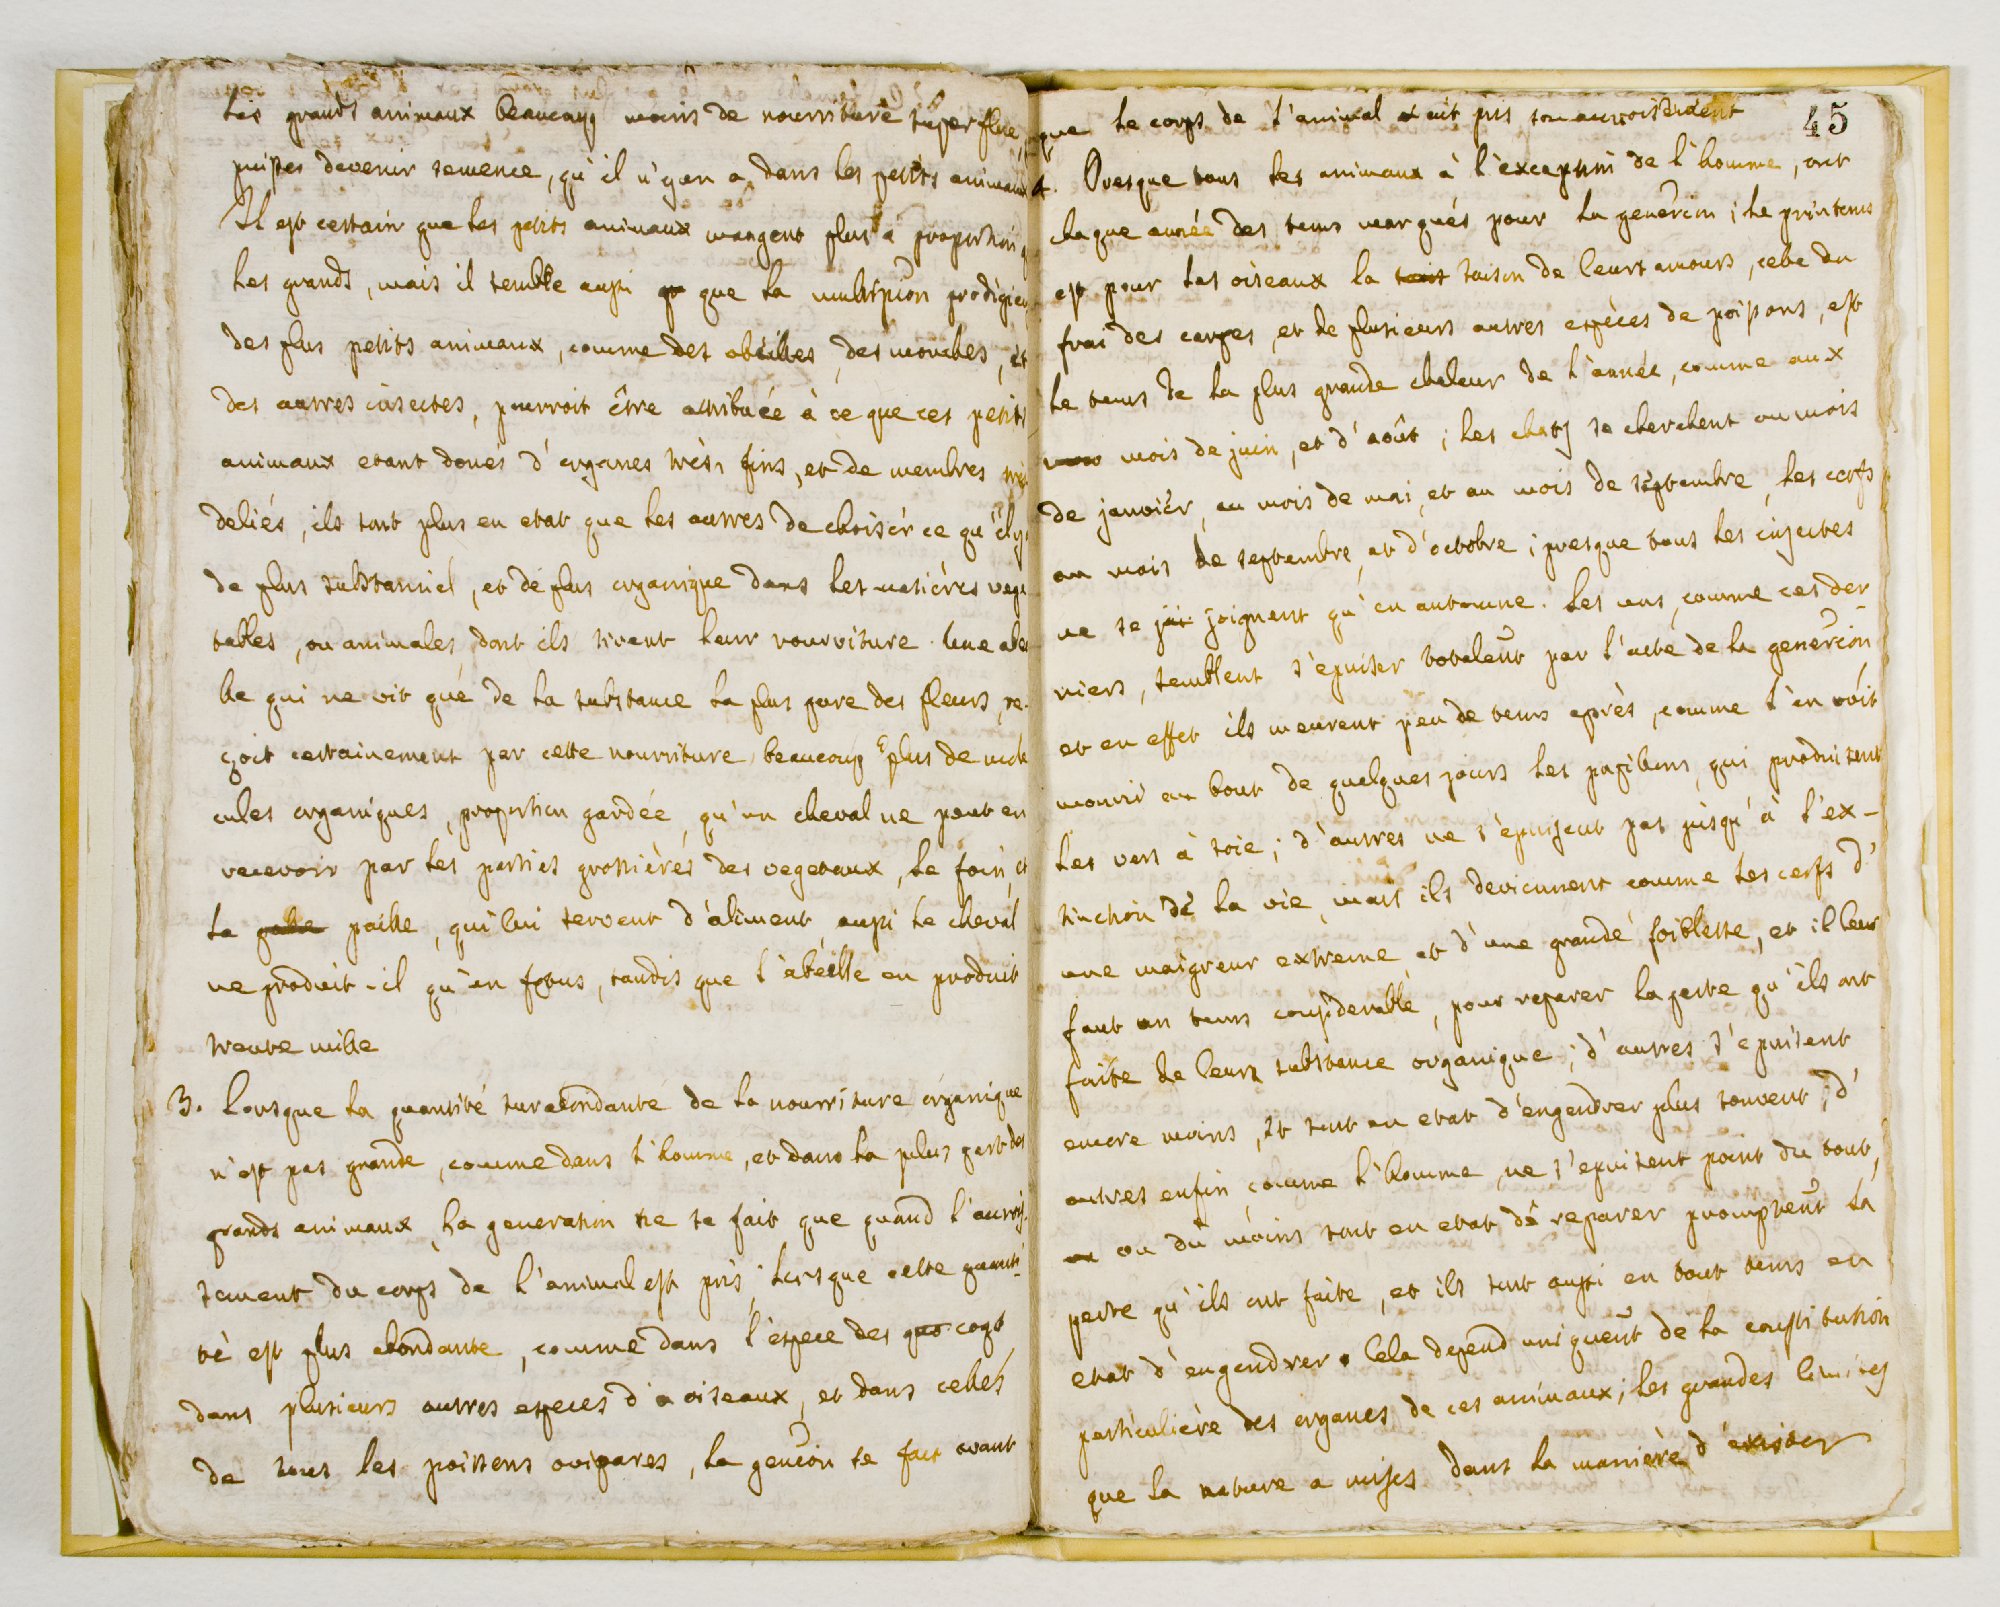 les grands animaux beaucoup moins de nourriture superflue
puisses devenir semence, qu'il n'y en a dans les petits animaux
Il est certain que les petits animaux mangent plus à proportion q
les grands, mais il semble aussi qu que la multipion prodigieu
des plus petits animaux, comme des abeilles, des mouches, et
des autres insectes, pourroit être attribuée à ce que ces petits
animaux etant doués d'organes très, fins, et de membres très
deliés, ils sont plus en etat que les autres de choisir ce qu'il y
de plus substantiel, et de plus organique dans les matières vege
tables, ou animales, dont ils tirent leur nourriture. Une abei
lle qui ne vit que de la substance la plus pure des fleurs, re-
çoit certainement par cette nourriture beaucoup plus de mole
cules organiques, proportion gardée, qu'un cheval ne peut en
recevoir par les parties grossières des vegetaux, le foin, et
la paille, qui lui servent d'aliment, aussi le cheval
ne produit-il qu'un fœtus, tandis que l'abeille en produit
trente mille
3. Lorsque la quantité surabondante de la nourriture organique
n'est pas grande, comme dans l'homme, et dans la plus part des
grands animaux, la generation ne se fait que quand l'accrois-
sement du corps de l'animal est pris; lorsque cette quanti-
té est plus abondante, comme dans l'espece des coqs
dans plusieurs autres especes d'oiseaux, et dans celles
de tous les poissons ovipares, la genẽon se fait avant
45
que le corps de l'animal ait pris son accroissement
4. Presque tous les animaux à l'exception de l'homme, ont
chaque année des tems marqués pour la generẽon; le printems
est pour les oiseaux la saison de leurs amours, celle du
frai des carpes, et de plusieurs autres espèces de poissons, est
le tems de la plus grande chaleur de l'année, comme aux
mois de juin, et d'août; les chats se cherchent au mois
de janvier, au mois de mai, et au mois de septembre, les cerfs
au mois de septembre, et d'octobre; presque tous les insectes
ne se joignent qu'en automne. Les uns, comme ces der
niers, semblent s'epuiser totalem̃t par l'acte de la generẽion
et en effet ils meurent peu de tems après, comme l'on voit
mourir au bout de quelques jours les papillons, qui produisent
les vers à soie; d'autres ne s'epuisent pas jusqu'à l'ex-
tinction de la vie, mais ils deviennent comme les cerfs d'
une maigreur extreme et d'une grande foiblesse, et il leur
faut un tems considerable, pour reparer la perte qu'ils ont
faite de leur substance organique; d'autres s'epuisent
encore moins, et sont en etat d'engendrer plus souvent; d'
autres enfin, comme l'homme, ne s'epuisent point du tout,
ou ou du moins sont en etat de reparer promptem̃t la
perte qu'ils ont faite, et ils sont aussi en tout tems en
etat d'engendrer. Cela depend uniquem̃t de la constitution
particulière des organes de ces animaux; les grandes limites
que la nature a mises dans la manière d'exister